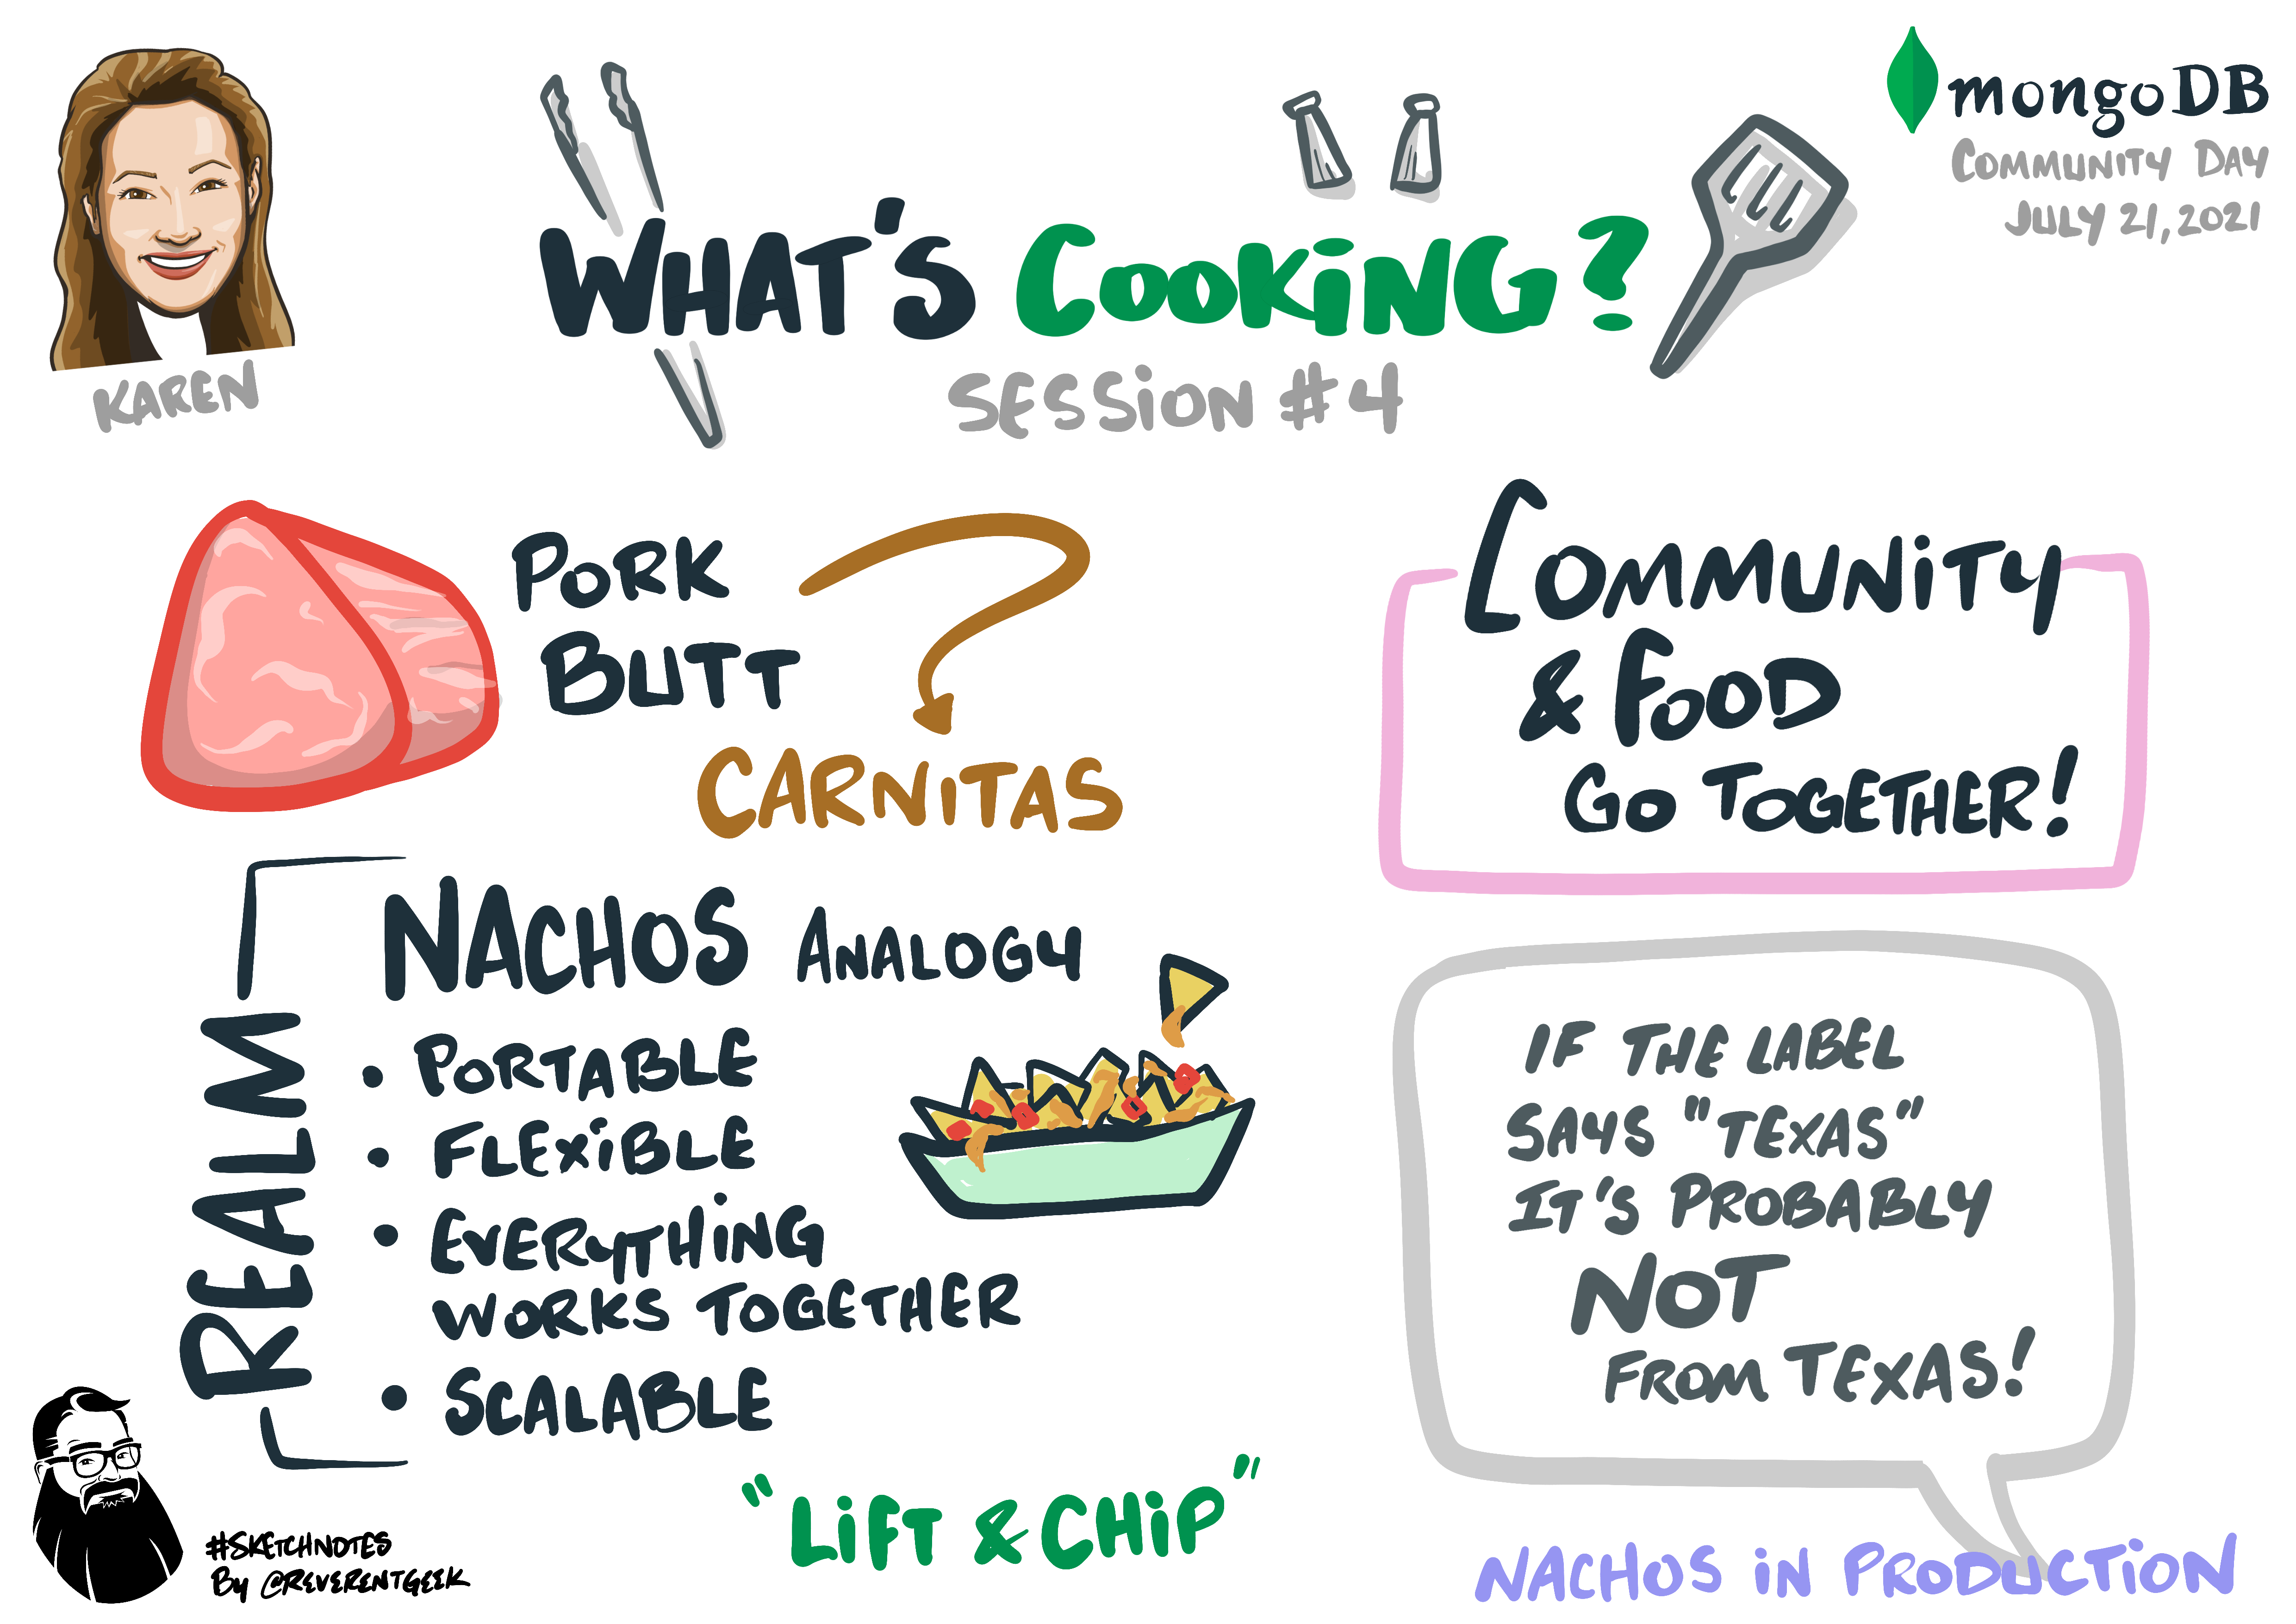 mongoDB
COMMUNITY DAY
JULY 21, 2021
WHAT'S COOKING?
SESSION #4
KAREN
PORK
BUTT
CARNITAS
COMMUNITY
& FOOD
GO TOGETHER!
REALM
NACHOS ANALOGY
• PORTABLE
• FLEXIBLE
• EVERYTHING
WORKS TOGETHER
• SCALABLE
"LIFT & CHIP"
IF THE LABEL
SAYS "TEXAS"
IT'S PROBABLY
NOT
FROM TEXAS!
NACHOS IN PRODUCTION
#SKETCHNOTES
By @REVERENTGEEK